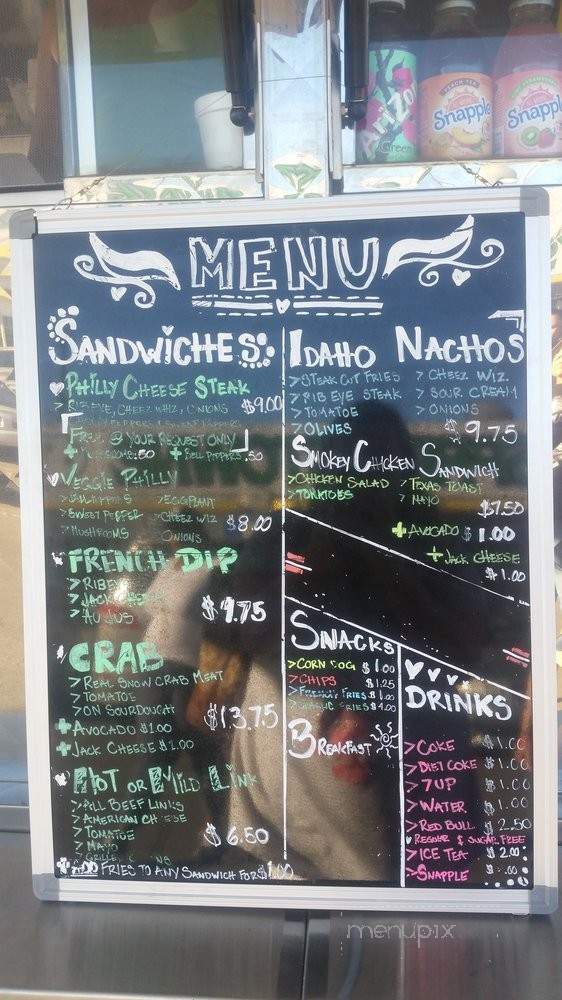 ARIZONA
Green
PEACH TEA
Snapple
Snapple
MENU
SANDWICHES
PHILLY CHEESE STEAK
> RIBEYE, CHEEZ WHIZ, ONIONS $9.00
FREE @ YOUR REQUEST ONLY
+ .50 + BELL PEPPERS .50
VEGGIE PHILLY
> EGGPLANT
> SWEET PEPPER > CHEEZ WIZ $8.00
> MUSHROOMS ONIONS
FRENCH DIP
> RIBEYE
> JACK CHEESE
> AU JUS $9.75
CRAB
> REAL SNOW CRAB MEAT
> TOMATOE
> ON SOURDOUGH $13.75
+ AVOCADO $1.00
+ JACK CHEESE $1.00
HOT OR MILD LINK
> ALL BEEF LINKS
> AMERICAN CHEESE
> TOMATOE
> MAYO $6.50
> GRILLED
+ ADD FRIES TO ANY SANDWICH FOR $1.00
IDAHO NACHOS
> STEAK CUT FRIES > CHEEZ WIZ.
> RIB EYE STEAK > SOUR CREAM
> TOMATOE > ONIONS
> OLIVES $9.75
SMOKEY CHICKEN SANDWICH
> CHICKEN SALAD > TEXAS TOAST
> TOMATOES > MAYO
$7.50
+ AVOCADO $1.00
+ JACK CHEESE
$1.00
SNACKS
> CORN DOG $1.00
> CHIPS $1.25
> FRENCH FRIES $1.00
> GARLIC FRIES $1.00
BREAKFAST
DRINKS
> COKE $1.00
> DIET COKE $1.00
> 7UP $1.00
> WATER $1.00
> RED BULL $2.50
REGULAR & SUGAR FREE
> ICE TEA $2.00
> SNAPPLE
menupix